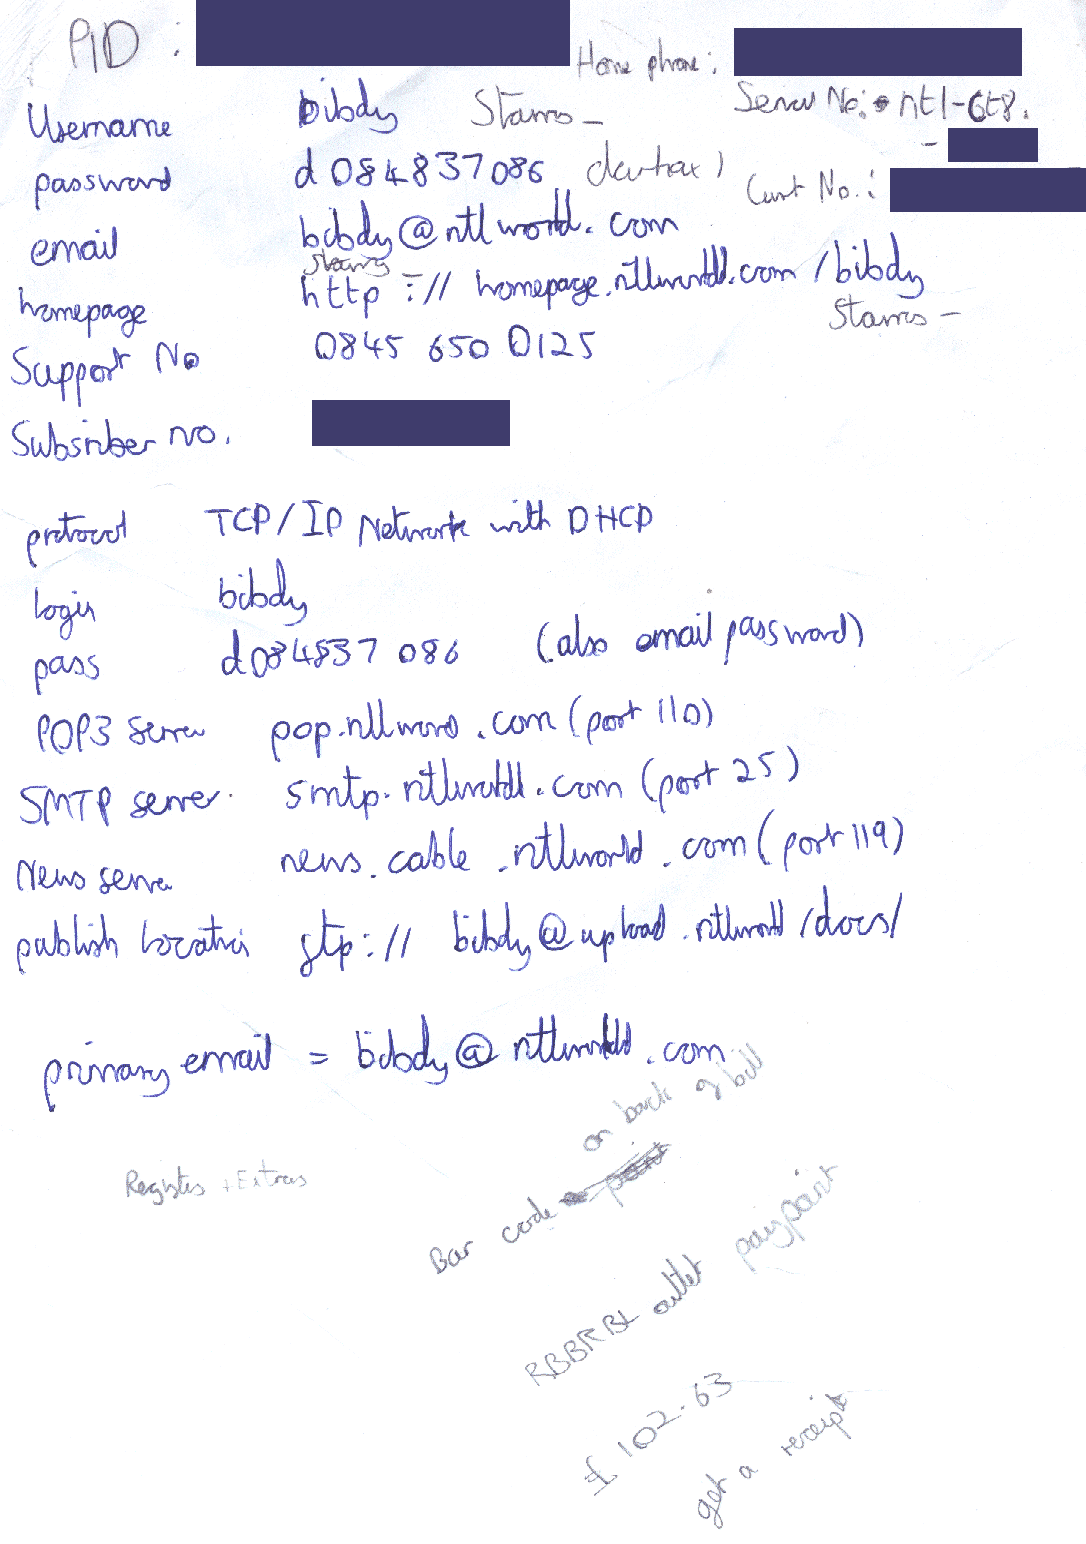 PID :
Home phone :
Username bibdy
Serial No: ntl-6t8.
-
password d084837086
Cust No. :
email bibdy@ntlworld.com
homepage http://homepage.ntlworld.com/bibdy
Support No 0845 650 0125
Subsriber no.
protocol TCP/IP Network with DHCP
login bibdy
pass d084837086 (also email password)
POP3 server pop.ntlword.com (port 110)
SMTP server. smtp.ntlworld.com (port 25)
News server news.cable.ntlworld.com (port 119)
publish location ftp:// bibdy@upload.ntlworld/docs/
primary email = bibdy@ntlworld.com
on back of bill
Register + Extras
Bar code
outlet paypoint
£102.63
get a receipt